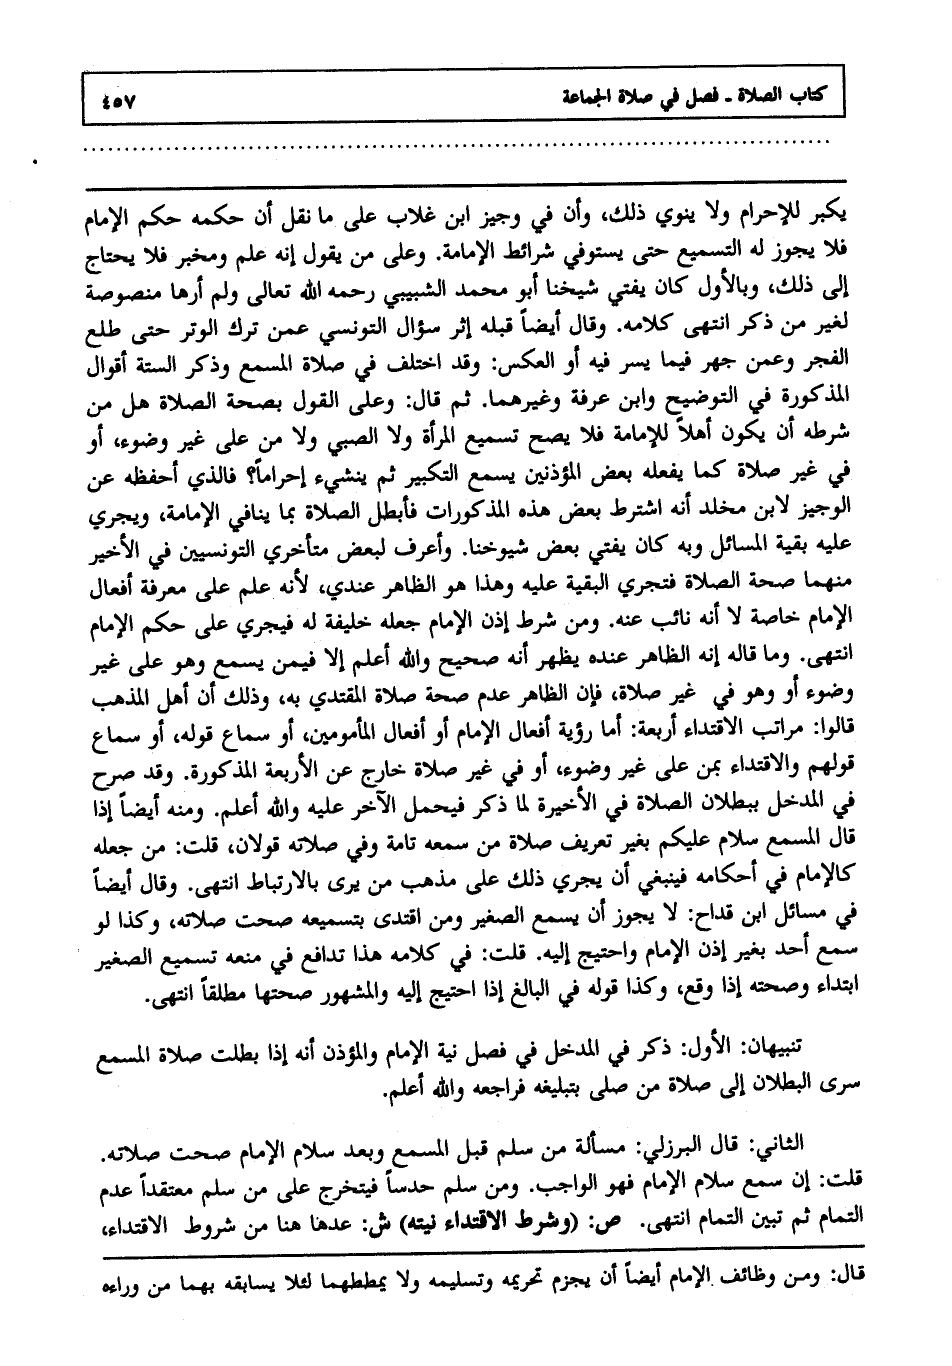 كتاب الصلاة ـ فصل في صلاة الجماعة ٤٥٧
يكبر للإحرام ولا ينوي ذلك، وأن في وجيز ابن غلاب على ما نقل أن حكمه حكم الإمام
فلا يجوز له التسميع حتى يستوفي شرائط الإمامة. وعلى من يقول إنه علم ومخبر فلا يحتاج
إلى ذلك، وبالأول كان يفتي شيخنا أبو محمد الشبيبي رحمه الله تعالى ولم أرها منصوصة
لغير من ذكر انتهى كلامه. وقال أيضاً قبله إثر سؤال التونسي عمن ترك الوتر حتى طلع
الفجر وعمن جهر فيما يسر فيه أو العكس: وقد اختلف في صلاة المسمع وذكر الستة أقوال
المذكورة في التوضيح وابن عرفة وغيرهما. ثم قال: وعلى القول بصحة الصلاة هل من
شرطه أن يكون أهلاً للإمامة فلا يصح تسميع المرأة ولا الصبي ولا من على غير وضوء، أو
في غير صلاة كما يفعله بعض المؤذنين يسمع التكبير ثم ينشيء إحراماً؟ فالذي أحفظه عن
الوجيز لابن مخلد أنه اشترط بعض هذه المذكورات فأبطل الصلاة بما ينافي الإمامة، ويجري
عليه بقية المسائل وبه كان يفتي بعض شيوخنا. وأعرف لبعض متأخري التونسيين في الأخير
منهما صحة الصلاة فتجري البقية عليه وهذا هو الظاهر عندي، لأنه علم على معرفة أفعال
الإمام خاصة لا أنه نائب عنه. ومن شرط إذن الإمام جعله خليفة له فيجري على حكم الإمام
انتهى. وما قاله إنه الظاهر عنده يظهر أنه صحيح والله أعلم إلا فيمن يسمع وهو على غير
وضوء أو وهو في غير صلاة، فإن الظاهر عدم صحة صلاة المقتدي به، وذلك أن أهل المذهب
قالوا: مراتب الاقتداء أربعة: أما رؤية أفعال الإمام أو أفعال المأمومين، أو سماع قوله، أو سماع
قولهم والاقتداء بمن على غير وضوء، أو في غير صلاة خارج عن الأربعة المذكورة. وقد صرح
في المدخل ببطلان الصلاة في الأخيرة لما ذكر فيحمل الآخر عليه والله أعلم. ومنه أيضاً إذا
قال المسمع سلام عليكم بغير تعريف صلاة من سمعه تامة وفي صلاته قولان، قلت: من جعله
كالإمام في أحكامه فينبغي أن يجري ذلك على مذهب من يرى بالارتباط انتهى. وقال أيضاً
في مسائل ابن قداح: لا يجوز أن يسمع الصغير ومن اقتدى بتسميعه صحت صلاته، وكذا لو
سمع أحد بغير إذن الإمام واحتيج إليه. قلت: في كلامه هذا تدافع في منعه تسميع الصغير
ابتداء وصحته إذا وقع، وكذا قوله في البالغ إذا احتيج إليه والمشهور صحتها مطلقاً انتهى.
تنبيهان: الأول: ذكر في المدخل في فصل نية الإمام والمؤذن أنه إذا بطلت صلاة المسمع
سرى البطلان إلى صلاة من صلى بتبليغه فراجعه والله أعلم.
الثاني: قال البرزلي: مسألة من سلم قبل المسمع وبعد سلام الإمام صحت صلاته.
قلت: إن سمع سلام الإمام فهو الواجب. ومن سلم حدساً فيتخرج على من سلم معتقداً عدم
التمام ثم تبين التمام انتهى. ص: (وشرط الاقتداء نيته) ش: عدها هنا من شروط الاقتداء،
قال: ومن وظائف الإمام أيضاً أن يجزم تحريمه وتسليمه ولا يمططهما لئلا يسابقه بهما من وراءه